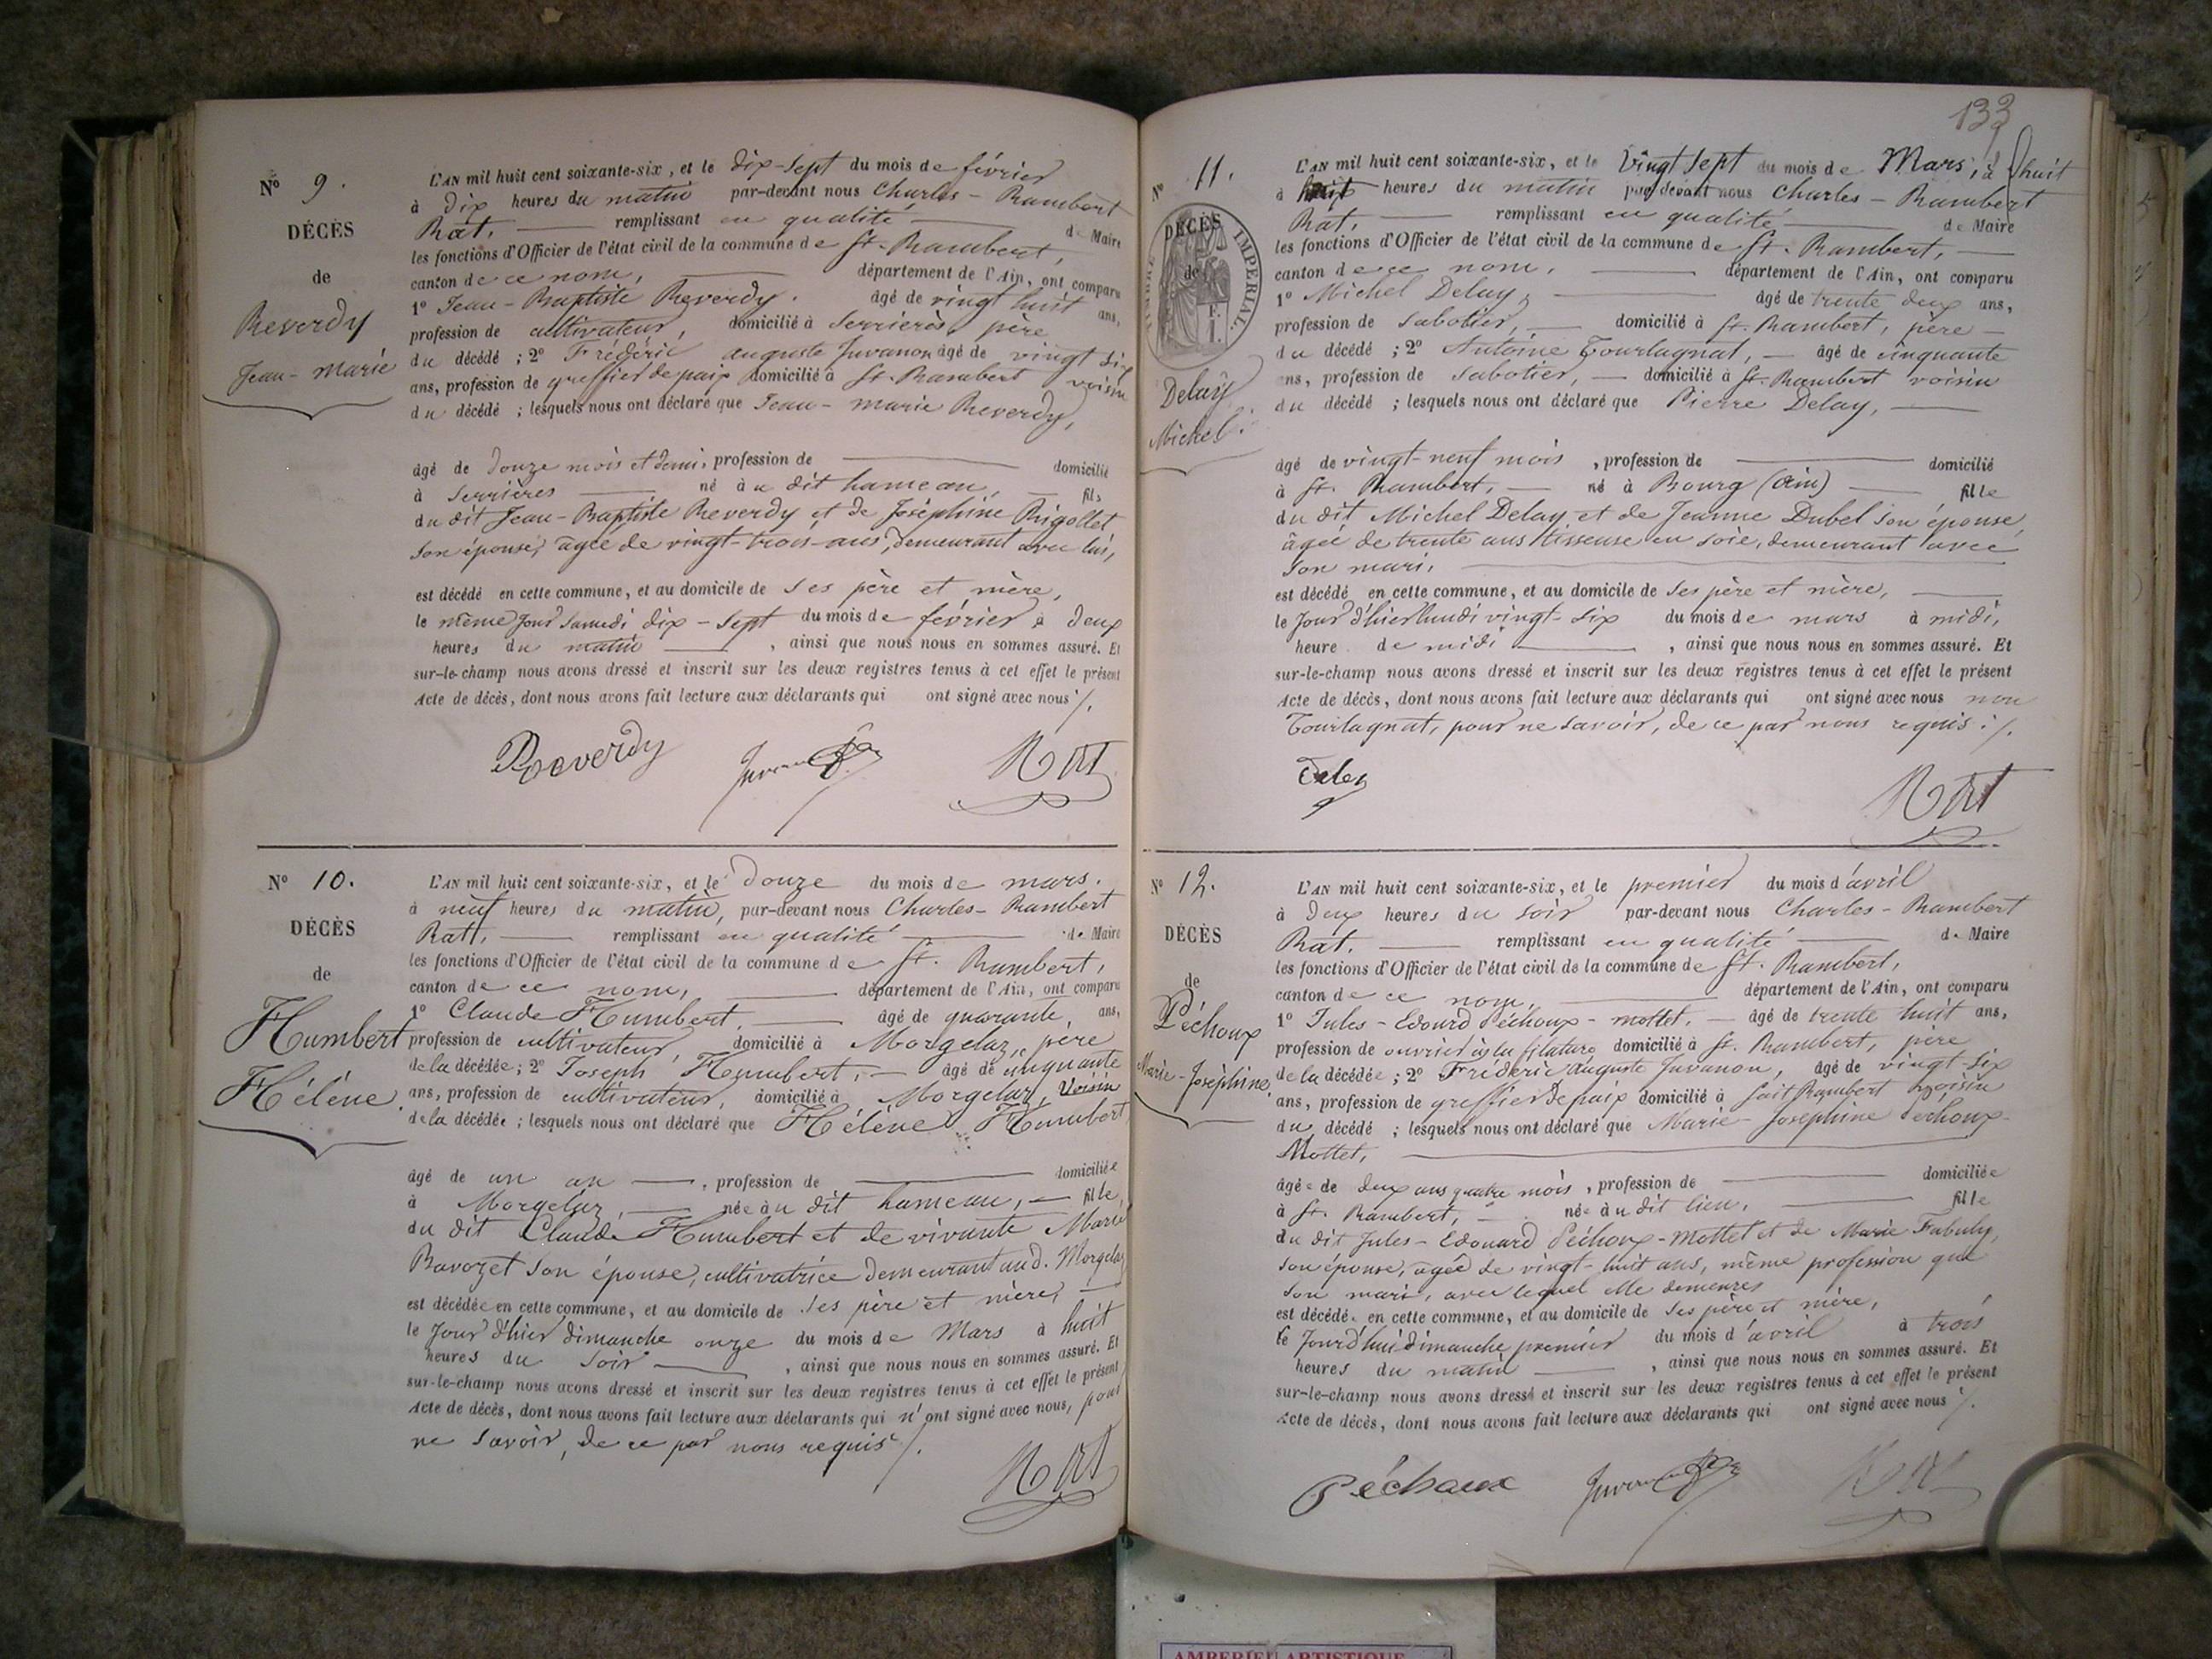 N° 9.
DÉCÈS
de
Reverdy
Jean-Marie
L'AN mil huit cent soixante-six, et le dix-sept du mois de février
à dix heures du matin par-devant nous Charles-Rambert
Rat, remplissant en qualité de Maire
les fonctions d'Officier de l'état civil de la commune de St. Rambert,
canton de ce nom, département de l'Ain, ont comparu
1° Jean-Baptiste Reverdy. âgé de vingt huit ans,
profession de cultivateur, domicilié à Serrières, père
du décédé ; 2° Frédéric auguste Juvanon âgé de vingt six
ans, profession de greffier de paix domicilié à St. Rambert voisin
du décédé ; lesquels nous ont déclaré que Jean-marie Reverdy,
âgé de douze mois et demi, profession de domicilié
à Serrières né à u dit hameau, fils
du dit Jean-Baptiste Reverdy et de Joséphine Rigollet
son épouse, âgée de vingt-trois-ans, demeurant avec lui,
est décédé en cette commune, et au domicile de ses père et mère,
le même jour samedi dix-sept du mois de février à deux
heures du matin , ainsi que nous nous en sommes assuré. Et
sur-le-champ nous avons dressé et inscrit sur les deux registres tenus à cet effet le présent
Acte de décès, dont nous avons fait lecture aux déclarants qui ont signé avec nous ./.
Reverdy Rat
N° 10.
DÉCÈS
de
Humbert
Hélène.
L'AN mil huit cent soixante-six, et le douze du mois de mars.
à neuf heures du matin, par-devant nous Charles-Rambert
Rat, remplissant en qualité de Maire
les fonctions d'Officier de l'état civil de la commune de St. Rambert,
canton de ce nom, département de l'Ain, ont comparu
1° Claude Humbert, âgé de quarante ans,
profession de cultivateur, domicilié à Morgelaz, père
de la décédée ; 2° Joseph Humbert, âgé de cinquante
ans, profession de cultivateur, domicilié à Morgelaz, Voisin
de la décédée ; lesquels nous ont déclaré que Hélène Humbert
âgé de un an , profession de domiciliée
à Morgelaz, née à u dit hameau, fille,
du dit Claude Humbert et de vivante Marie
Bavozet son épouse, cultivatrice demeurant aud. Morgelaz
est décédée en cette commune, et au domicile de ses père et mère,
le jour d'hier dimanche onze du mois de Mars à huit
heures du soir , ainsi que nous nous en sommes assuré. Et
sur-le-champ nous avons dressé et inscrit sur les deux registres tenus à cet effet le présent
Acte de décès, dont nous avons fait lecture aux déclarants qui n'ont signé avec nous, pour
ne savoir, de ce par nous requis ./.
Rat
133
N° 11.
TIMBRE IMPERIAL.
DÉCÈS
de
Delay
Michel.
L'AN mil huit cent soixante-six, et le vingt sept du mois de Mars, à huit
à huit heures du matin par-devant nous Charles-Rambert
Rat, remplissant en qualité de Maire
les fonctions d'Officier de l'état civil de la commune de St. Rambert,
canton de ce nom, département de l'Ain, ont comparu
1° Michel Delay, âgé de trente deux ans,
profession de sabotier, domicilié à St. Rambert, père
du décédé ; 2° Antoine Tourlagnat, âgé de cinquante
ans, profession de sabotier, domicilié à St. Rambert voisin
du décédé ; lesquels nous ont déclaré que Pierre Delay,
âgé de vingt-neuf mois , profession de domicilié
à St. Rambert, né à Bourg (Ain) fille
du dit Michel Delay et de Jeanne Dubel son épouse,
âgée de trente ans tisseuse en soie, demeurant avec
son mari.
est décédé en cette commune, et au domicile de ses père et mère,
le jour d'hier lundi vingt-six du mois de mars à midi,
heure de midi , ainsi que nous nous en sommes assuré. Et
sur-le-champ nous avons dressé et inscrit sur les deux registres tenus à cet effet le présent
Acte de décès, dont nous avons fait lecture aux déclarants qui ont signé avec nous non
Tourlagnat, pour ne savoir, de ce par nous requis ./.
Rat
N° 12.
DÉCÈS
de
Péchoux
Marie-Joséphine.
L'AN mil huit cent soixante-six, et le premier du mois d'avril
à deux heures du soir par-devant nous Charles-Rambert
Rat, remplissant en qualité de Maire
les fonctions d'Officier de l'état civil de la commune de St. Rambert,
canton de ce nom, département de l'Ain, ont comparu
1° Jules-Edourd Péchoux-mottet. âgé de trente huit ans,
profession de ouvrier à la filature domicilié à St. Rambert, père
de la décédée ; 2° Frédéric auguste Juvanon, âgé de vingt six
ans, profession de greffier de paix domicilié à Sait Rambert voisin
du décédé ; lesquels nous ont déclaré que Marie-Joséphine Péchoux-
Mottet,
âgée de deux ans quatre mois , profession de domiciliée
à St. Rambert, née à u dit lieu, fille
du dit Jules-Edouard Péchoux-Mottet et de Marie
son épouse, âgée de vingt-huit ans, même profession que
son mari, avec lequel elle demeure
est décédée en cette commune, et au domicile de ses père et mère,
le jourd'hui dimanche premier du mois d'avril à trois
heures du matin , ainsi que nous nous en sommes assuré. Et
sur-le-champ nous avons dressé et inscrit sur les deux registres tenus à cet effet le présent
Acte de décès, dont nous avons fait lecture aux déclarants qui ont signé avec nous ./.
Péchoux Rat
AMBERIEU ARTISTIQUE